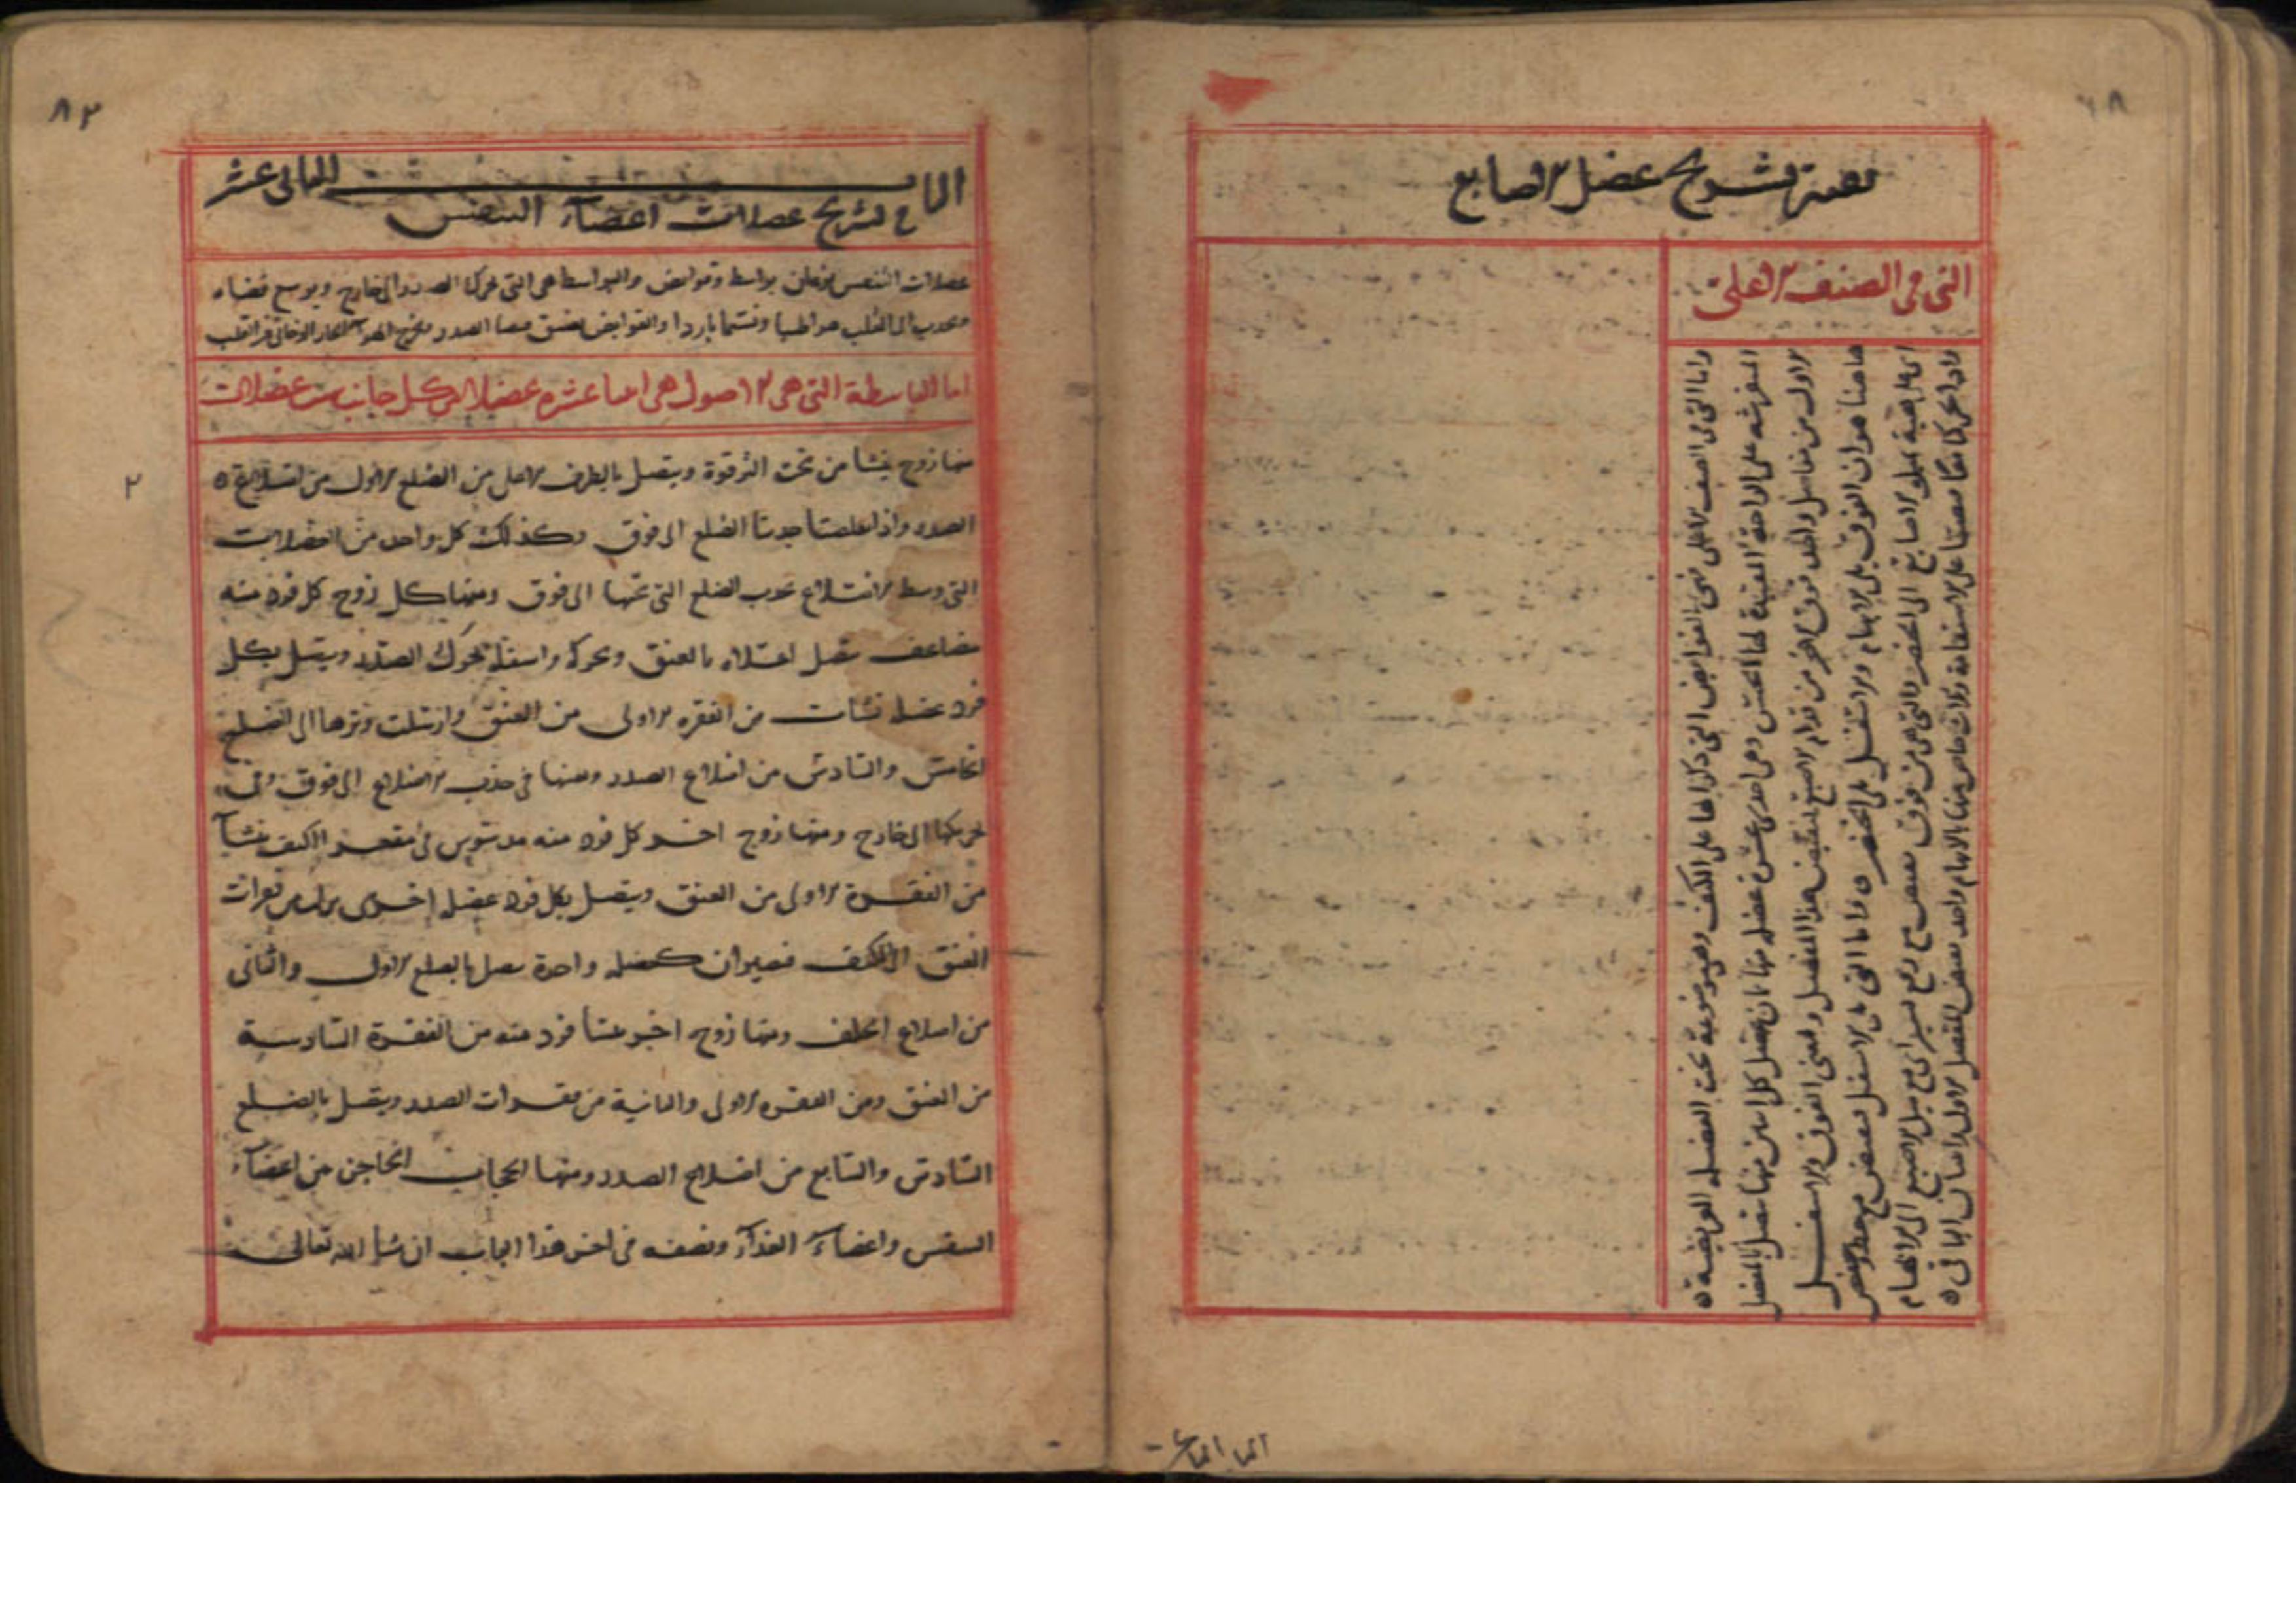 بقية تشريح عضل الاصابع
التي في الصنف الاعلى
واما التي في الصنف الاعلى فهي القوابض التي ذكرناها على الكتف وهي موضوعة تحت العضلة العريضة
المفترشة على الراحة المفيدة لها الحس وهي احدى عشرة عضلة منها ثمان يتصل كل اثنين منها بالمفصل
الاول من مفاصل واحد فوق الاخر من قدام الاصبع لتقبض هذا المفصل واعني الفوق والاسفل
هاهنا هو ان الفوق يلي الابهام والاسفل يلي الخنصر واما التي يلي الاسفل بقبض مع حط وخفض
اي امالة يميلو الاصابع الى الخنصر والتي هي من فوق تقبض مع رفع يسير اي مع ميل الاصبع الى الابهام
واذا تحركا معا قبضتا على الاستقامة وثلاث خاص منها بالابهام واحد بقبض المفصل الاول واثنان الثاني
الباب الثاني عشر
في تشريح عضلات اعضاء التنفس
عضلات التنفس نوعان بواسط وقوابض والبواسط هي التي تحرك الصدر الى خارج ويوسع فضاء
ويجذب الى القلب هوا طيبا ونسيما باردا والقوابض تضيق فضا الصدر وتخرج الهواء الحار الدخاني من القلب
اما الباسطة التي هي اصول هي اثنا عشره عضلا لكل جانب ست عضلات
منها زوج ينشا من تحت الترقوة ويتصل بالطرف الاعلى من الضلع الاول من اضلاع
الصدر واذا تقلصتا جذبتا الضلع الى فوق وكذلك كل واحد من العضلات
التي وسط الاضلاع تجذب الضلع التي تحتها الى فوق ومنها كل زوج كل فرد منه
مضاعف يتصل اعلاه بالعنق وتحركه واسفله يحرك الصدر ويتصل بكل
فرد عضله نشات من الفقره الاولى من العنق وارسلت وترها الى الضلع
الخامس والسادس من اضلاع الصدر ومعينها في جذب الاضلاع الى فوق وفي
تحريكها الى خارج ومنها زوج اخر كل فرد منه مدسوس في مقعر الكتف نشا
من الفقرة الاولى من العنق ويتصل بكل فرد عضله اخرى نزل من فقرات
العنق الى الكتف فيصيران كعضله واحدة يتصل بالضلع الاول والثاني
من اضلاع الخلف ومنها زوج اخر ينشا فرد منه من الفقرة السادسة
من العنق ومن الفقره الاولى والثانية من فقرات الصدر ويتصل بالضلع
السادس والسابع من اضلاع الصدر ومنها الحجاب الحاجز بين اعضاء
التنفس واعضاء الغذآء ونصفه في اخر هذا الباب ان شا الله تعالى
٨٢